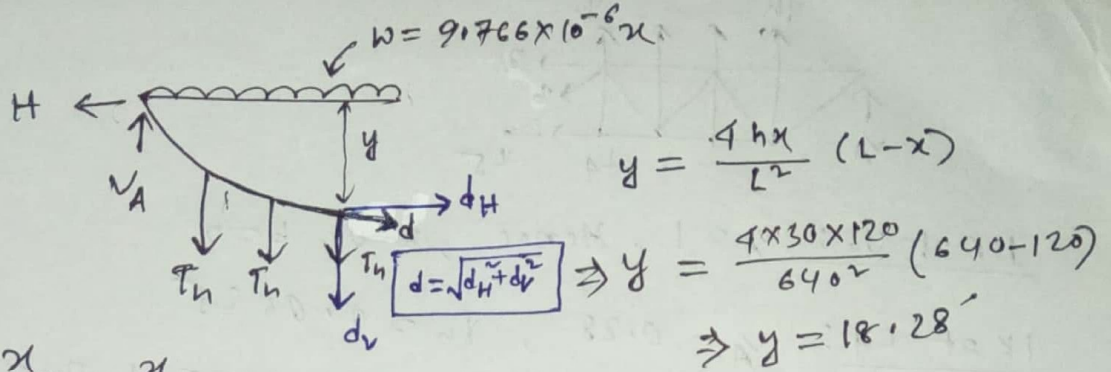 w = 9.766 × 10⁻⁶ x
H
y
V_A
T_h T_h T_h
d_H
d
d_v
d = √(d_H² + d_v²)
y = 4hx / L² (L - x)
⇒ y = 4×30×120 / 640² (640 - 120)
⇒ y = 18.28'
x x